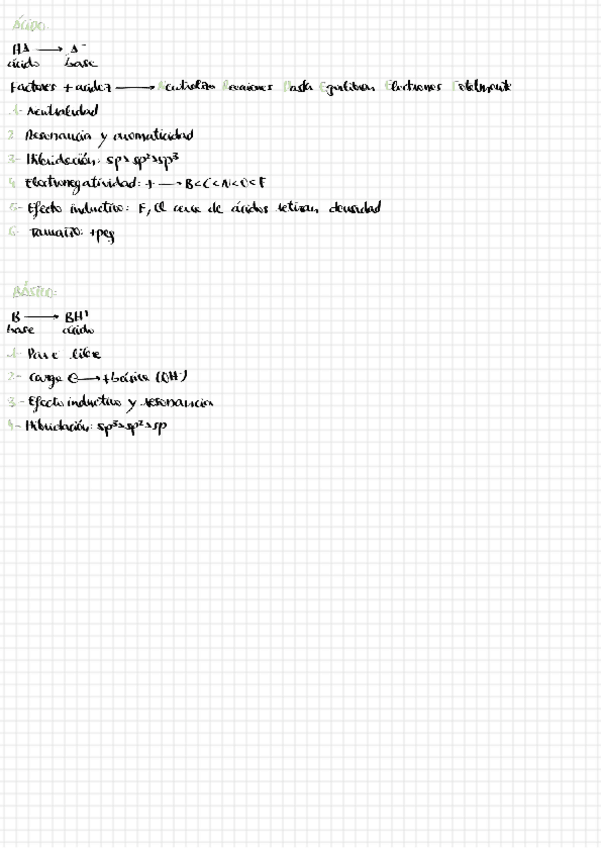 Ácido:
HA → A⁻
ácido base
Factores + acidez → Neutralizo Reacciones Hasta Equilibrar Electrones Totalmente
1- Neutralidad
2- Resonancia y aromaticidad
3- Hibridación: sp>sp²>sp³
4- Electronegatividad: + → B<C<N<O<F
5- Efecto inductivo: F, Cl cerca de ácidos retiran densidad
6- Tamaño: +peq
Básico:
B → BH⁺
base ácido
1- Pares libre
2- Carga ⊖ → + básica (OH⁻)
3- Efecto inductivo y resonancia
4- Hibridación: sp³>sp²>sp